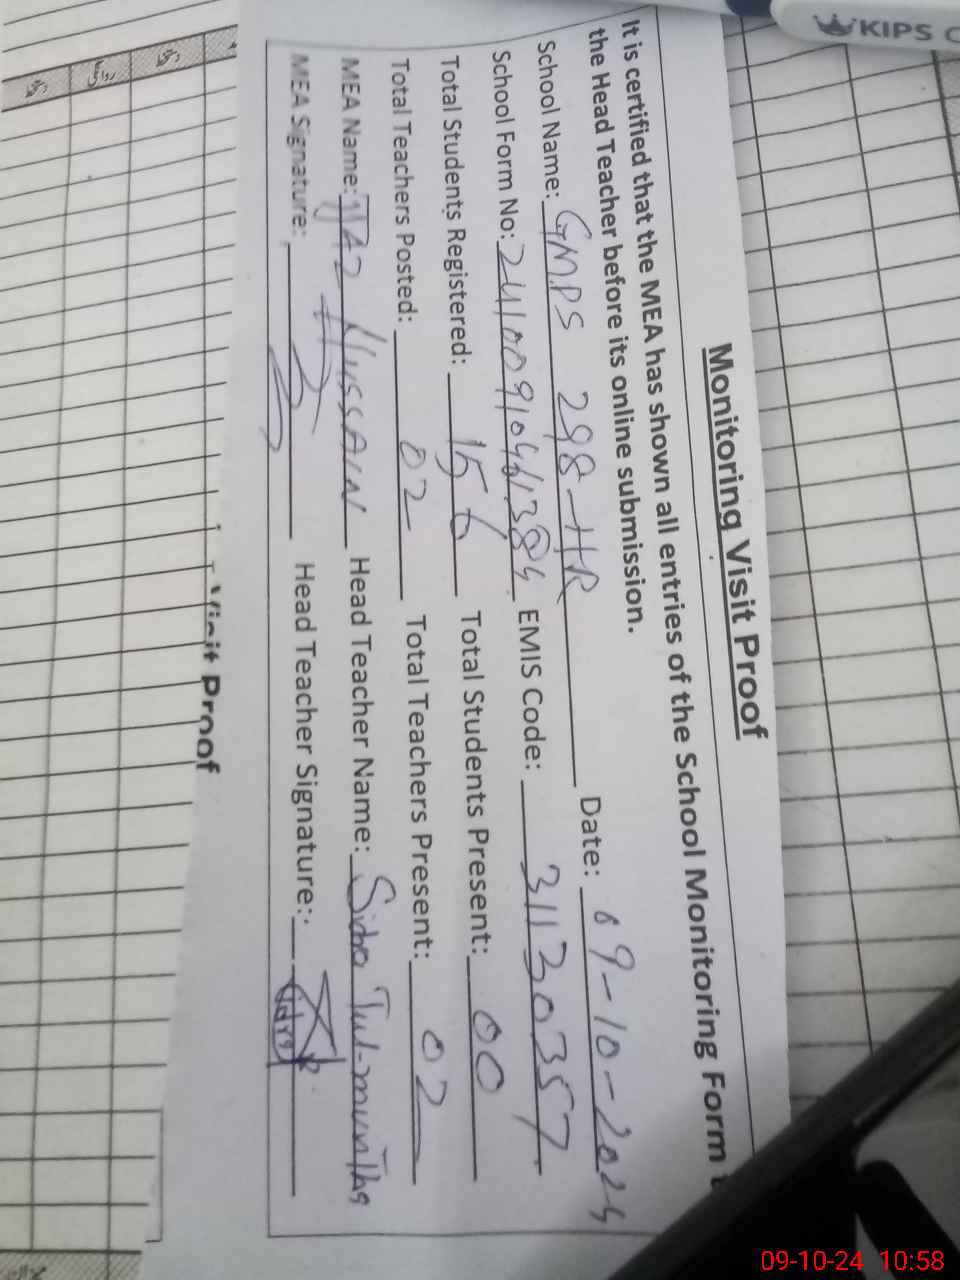 KIPS C
Monitoring Visit Proof
It is certified that the MEA has shown all entries of the School Monitoring Form t
the Head Teacher before its online submission.
School Name: GMPS 298-HR Date: 09-10-2024
School Form No: EMIS Code: 31130357
Total Students Registered: 156 Total Students Present: 00
Total Teachers Posted: 02 Total Teachers Present: 02
MEA Name: IJAZ HUSSAIN Head Teacher Name: Sidra Tul-muntha
MEA Signature: Head Teacher Signature: Sidra
Visit Proof
09-10-24 10:58